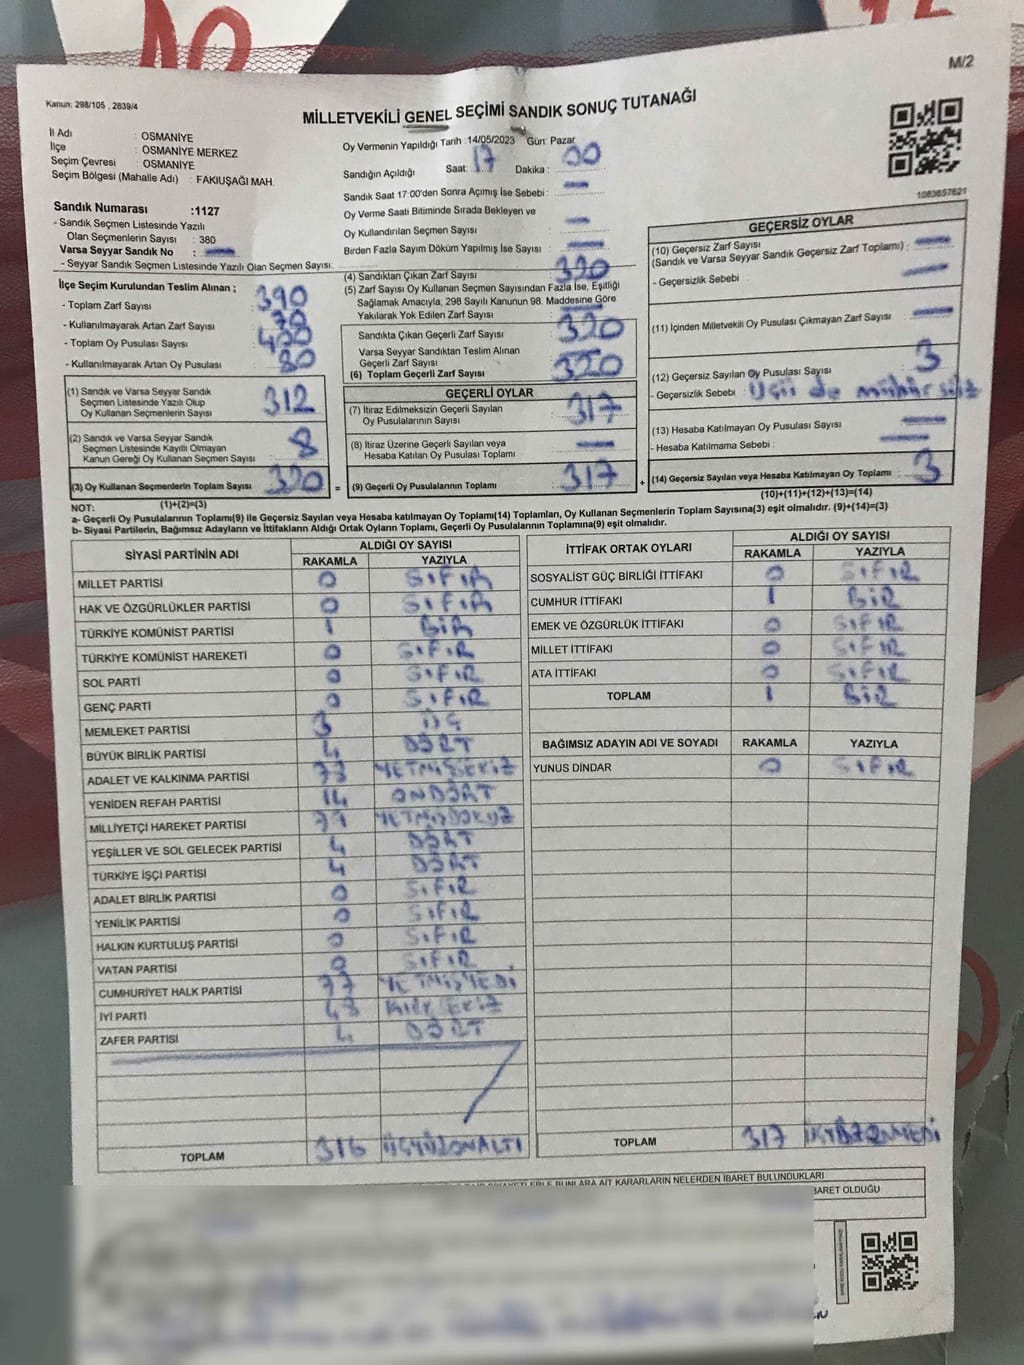 M/2
Kanun: 298/105 , 2839/4
MİLLETVEKİLİ GENEL SEÇİMİ SANDIK SONUÇ TUTANAĞI
İl Adı : OSMANİYE
İlçe : OSMANİYE MERKEZ
Seçim Çevresi : OSMANİYE
Seçim Bölgesi (Mahalle Adı) : FAKIUŞAĞI MAH.
Oy Vermenin Yapıldığı Tarih :14/05/2023 Gün: Pazar
Sandığın Açıldığı Saat: 17 Dakika : 00
Sandık Saat 17:00'den Sonra Açımış İse Sebebi :
Oy Verme Saati Bitiminde Sırada Bekleyen ve
Oy Kullandırılan Seçmen Sayısı :
Birden Fazla Sayım Döküm Yapılmış İse Sayısı :
1083657621
Sandık Numarası :1127
- Sandık Seçmen Listesinde Yazılı
Olan Seçmenlerin Sayısı : 380
Varsa Seyyar Sandık No :
- Seyyar Sandık Seçmen Listesinde Yazılı Olan Seçmen Sayısı:
İlçe Seçim Kurulundan Teslim Alınan ;
- Toplam Zarf Sayısı : 390
- Kullanılmayarak Artan Zarf Sayısı : 70
- Toplam Oy Pusulası Sayısı : 400
- Kullanılmayarak Artan Oy Pusulası : 80
(1) Sandık ve Varsa Seyyar Sandık
Seçmen Listesinde Yazılı Olup
Oy Kullanan Seçmenlerin Sayısı : 312
(2) Sandık ve Varsa Seyyar Sandık
Seçmen Listesinde Kayıtlı Olmayan
Kanun Gereği Oy Kullanan Seçmen Sayısı : 8
(3) Oy Kullanan Seçmenlerin Toplam Sayısı : 320
(1)+(2)=(3)
(4) Sandıktan Çıkan Zarf Sayısı : 320
(5) Zarf Sayısı Oy Kullanan Seçmen Sayısından Fazla İse, Eşitliği
Sağlamak Amacıyla, 298 Sayılı Kanunun 98. Maddesine Göre
Yakılarak Yok Edilen Zarf Sayısı :
Sandıkta Çıkan Geçerli Zarf Sayısı : 320
Varsa Seyyar Sandıktan Teslim Alınan
Geçerli Zarf Sayısı :
(6) Toplam Geçerli Zarf Sayısı : 320
GEÇERLİ OYLAR
(7) İtiraz Edilmeksizin Geçerli Sayılan
Oy Pusulalarının Sayısı : 317
(8) İtiraz Üzerine Geçerli Sayılan veya
Hesaba Katılan Oy Pusulası Toplamı :
= (9) Geçerli Oy Pusulalarının Toplamı : 317
GEÇERSİZ OYLAR
(10) Geçersiz Zarf Sayısı
(Sandık ve Varsa Seyyar Sandık Geçersiz Zarf Toplamı) :
- Geçersizlik Sebebi :
(11) İçinden Milletvekili Oy Pusulası Çıkmayan Zarf Sayısı :
(12) Geçersiz Sayılan Oy Pusulası Sayısı : 3
- Geçersizlik Sebebi : Üçü de mühürsüz
(13) Hesaba Katılmayan Oy Pusulası Sayısı :
- Hesaba Katılmama Sebebi :
+ (14) Geçersiz Sayılan veya Hesaba Katılmayan Oy Toplamı : 3
(10)+(11)+(12)+(13)=(14)
NOT:
a- Geçerli Oy Pusulalarının Toplamı(9) ile Geçersiz Sayılan veya Hesaba katılmayan Oy Toplamı(14) Toplamları, Oy Kullanan Seçmenlerin Toplam Sayısına(3) eşit olmalıdır. (9)+(14)=(3)
b- Siyasi Partilerin, Bağımsız Adayların ve İttifakların Aldığı Ortak Oyların Toplamı, Geçerli Oy Pusulalarının Toplamına(9) eşit olmalıdır.
SİYASİ PARTİNİN ADI ALDIĞI OY SAYISI
RAKAMLA YAZIYLA
MİLLET PARTİSİ 0 SIFIR
HAK VE ÖZGÜRLÜKLER PARTİSİ 0 SIFIR
TÜRKİYE KOMÜNİST PARTİSİ 1 BİR
TÜRKİYE KOMÜNİST HAREKETİ 0 SIFIR
SOL PARTİ 0 SIFIR
GENÇ PARTİ 0 SIFIR
MEMLEKET PARTİSİ 3 ÜÇ
BÜYÜK BİRLİK PARTİSİ 4 DÖRT
ADALET VE KALKINMA PARTİSİ 78 YETMİŞSEKİZ
YENİDEN REFAH PARTİSİ 14 ONDÖRT
MİLLİYETÇİ HAREKET PARTİSİ 79 YETMİŞDOKUZ
YEŞİLLER VE SOL GELECEK PARTİSİ 4 DÖRT
TÜRKİYE İŞÇİ PARTİSİ 4 DÖRT
ADALET BİRLİK PARTİSİ 0 SIFIR
YENİLİK PARTİSİ 0 SIFIR
HALKIN KURTULUŞ PARTİSİ 0 SIFIR
VATAN PARTİSİ 0 SIFIR
CUMHURİYET HALK PARTİSİ 77 YETMİŞYEDİ
İYİ PARTİ 48 KIRKSEKİZ
ZAFER PARTİSİ 4 DÖRT
TOPLAM 316 ÜÇYÜZONALTI
İTTİFAK ORTAK OYLARI ALDIĞI OY SAYISI
RAKAMLA YAZIYLA
SOSYALİST GÜÇ BİRLİĞİ İTTİFAKI 0 SIFIR
CUMHUR İTTİFAKI 1 BİR
EMEK VE ÖZGÜRLÜK İTTİFAKI 0 SIFIR
MİLLET İTTİFAKI 0 SIFIR
ATA İTTİFAKI 0 SIFIR
TOPLAM 1 BİR
BAĞIMSIZ ADAYIN ADI VE SOYADI RAKAMLA YAZIYLA
YUNUS DİNDAR 0 SIFIR
TOPLAM 317
BUNLARA AİT KARARLARIN NELERDEN İBARET BULUNDUKLARI
BARET OLDUĞU